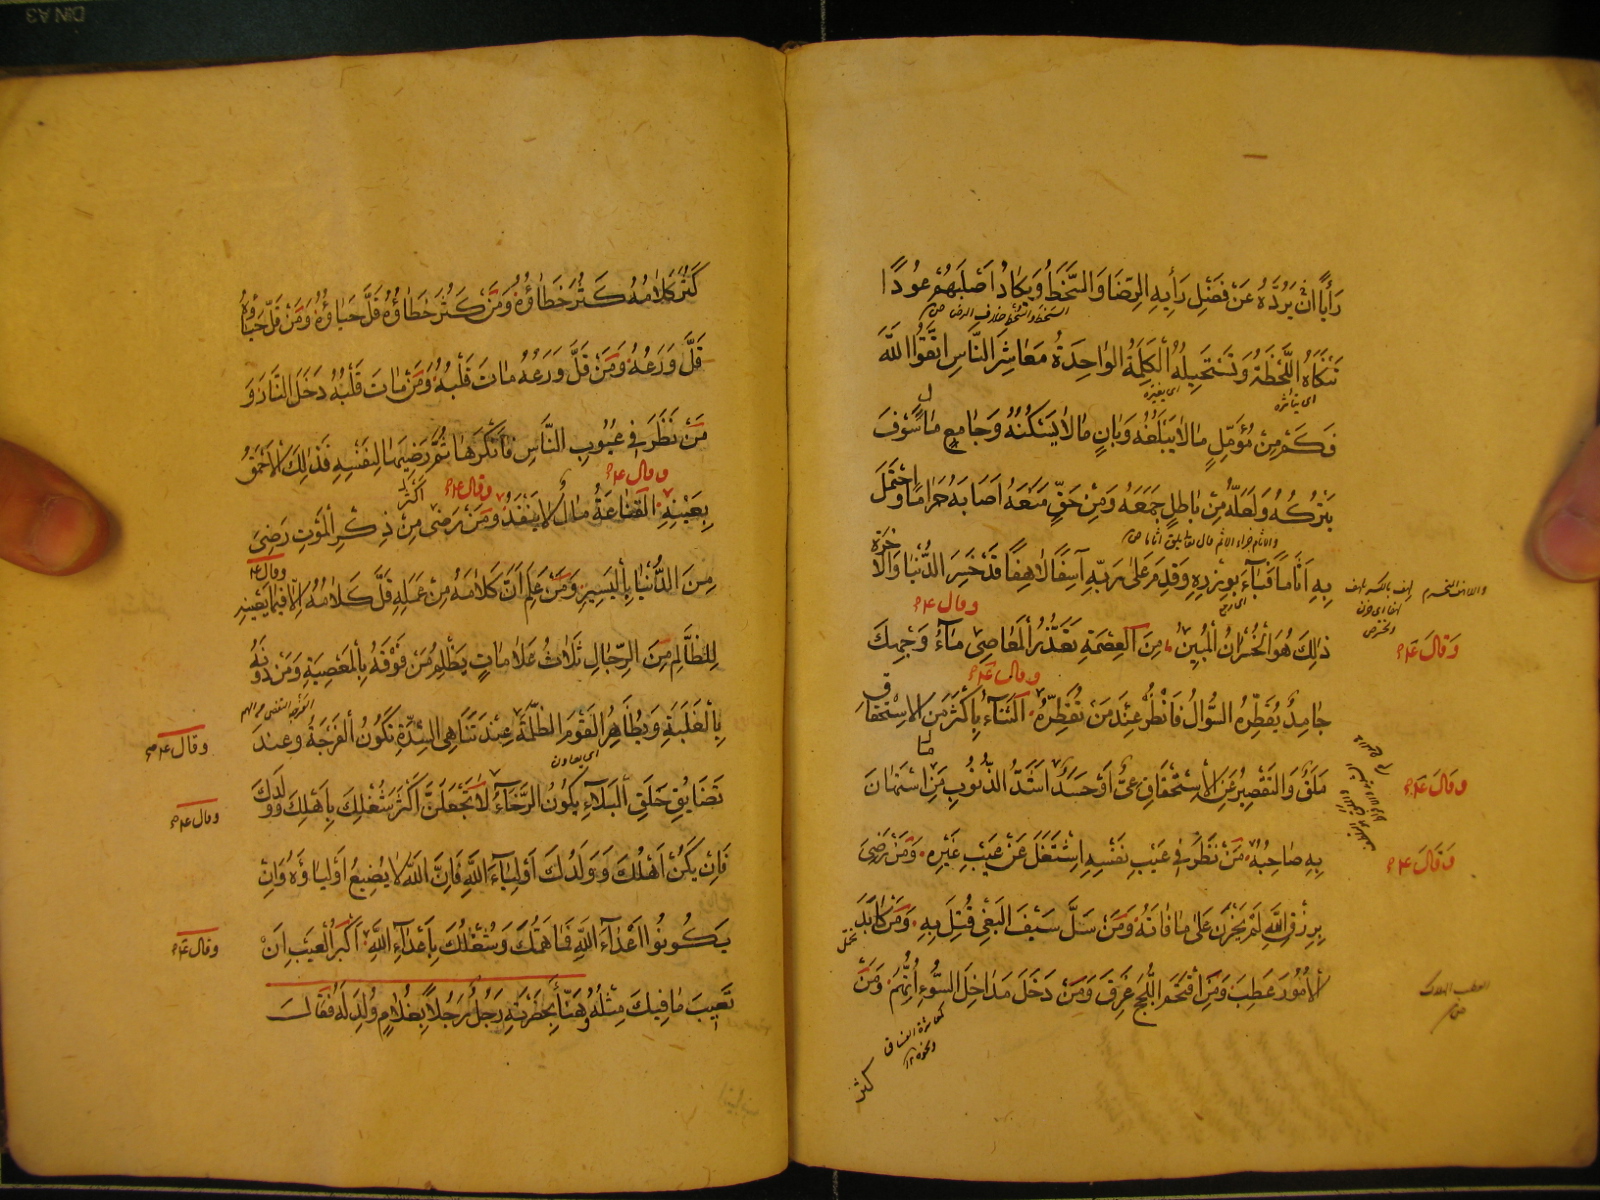 رَأْيًا أَنْ يَرُدَّهُ عَنْ فَضْلِ رَأْيِهِ الرِّضَا وَالسَّخَطُ وَيَكَادُ أَصْلَبُهُمْ عُودًا
السخط والسخط خلاف الرضا
تَنْكَاهُ اللَّحْظَةُ وَتَسْتَحِيلُهُ الْكَلِمَةُ الْوَاحِدَةُ مَعَاشِرَ النَّاسِ اتَّقُوا اللَّهَ
اى يغيره
فَكَمْ مِنْ مُؤَمِّلٍ مَا لَا يَبْلُغُهُ وَبَانٍ مَا لَا يَسْكُنُهُ وَجَامِعٍ مَا سَوْفَ
يَتْرُكُهُ وَلَعَلَّهُ مِنْ بَاطِلٍ جَمَعَهُ وَمِنْ حَقٍّ مَنَعَهُ أَصَابَهُ حَرَامًا وَاحْتَمَلَ
والاثام جزاء الاثم قال تعالى يلق اثاما
بِهِ آثَامًا فَبَاءَ بِوِزْرِهِ وَقَدِمَ عَلَى رَبِّهِ آسِفًا لَاهِفًا قَدْ خَسِرَ الدُّنْيَا وَالْآخِرَةَ
وقال ع
ذَلِكَ هُوَ الْخُسْرَانُ الْمُبِينُ مِنَ الْعِصْمَةِ تَعَذُّرُ الْمَعَاصِي مَاءُ وَجْهِكَ
وَقَالَ ع
وقال ع
جَامِدٌ يُقَطِّرُهُ السُّؤَالُ فَانْظُرْ عِنْدَ مَنْ تُقَطِّرُهُ الثَّنَاءُ بِأَكْثَرَ مِنَ الِاسْتِحْقَاقِ
مَلَقٌ وَالتَّقْصِيرُ عَنِ الْاِسْتِحْقَاقِ عِيٌّ أَوْ حَسَدٌ أَشَدُّ الذُّنُوبِ مَا اسْتَهَانَ
وَقَالَ ع
بِهِ صَاحِبُهُ مَنْ نَظَرَ فِي عَيْبِ نَفْسِهِ اشْتَغَلَ عَنْ عَيْبِ غَيْرِهِ وَمَنْ رَضِيَ
وَقَالَ ع
بِرِزْقِ اللَّهِ لَمْ يَحْزَنْ عَلَى مَا فَاتَهُ وَمَنْ سَلَّ سَيْفَ الْبَغْيِ قُتِلَ بِهِ وَمَنْ كَابَدَ
الْأُمُورَ عَطِبَ وَمَنِ اقْتَحَمَ اللُّجَجَ غَرِقَ وَمَنْ دَخَلَ مَدَاخِلَ السُّوءِ اتُّهِمَ وَمَنْ
العطب الهلاك
كثر
كَثُرَ كَلَامُهُ كَثُرَ خَطَاؤُهُ وَمَنْ كَثُرَ خَطَاؤُهُ قَلَّ حَيَاؤُهُ وَمَنْ قَلَّ حَيَاؤُهُ
قَلَّ وَرَعُهُ وَمَنْ قَلَّ وَرَعُهُ مَاتَ قَلْبُهُ وَمَنْ مَاتَ قَلْبُهُ دَخَلَ النَّارَ وَ
مَنْ نَظَرَ فِي عُيُوبِ النَّاسِ فَأَنْكَرَهَا ثُمَّ رَضِيَهَا لِنَفْسِهِ فَذَلِكَ الْأَحْمَقُ
وقال ع وقال ع
بِعَيْنِهِ الْقَنَاعَةُ مَالٌ لَا يَنْفَدُ وَمَنْ أَكْثَرَ مِنْ ذِكْرِ الْمَوْتِ رَضِيَ
وقال ع
مِنَ الدُّنْيَا بِالْيَسِيرِ وَمَنْ عَلِمَ أَنَّ كَلَامَهُ مِنْ عَمَلِهِ قَلَّ كَلَامُهُ إِلَّا فِيمَا يَعْنِيهِ
لِلظَّالِمِ مِنَ الرِّجَالِ ثَلَاثُ عَلَامَاتٍ يَظْلِمُ مَنْ فَوْقَهُ بِالْمَعْصِيَةِ وَمَنْ دُونَهُ
بِالْغَلَبَةِ وَيُظَاهِرُ الْقَوْمَ الظَّلَمَةَ عِنْدَ تَنَاهِي الشِّدَّةِ تَكُونُ الْفَرْجَةُ وَعِنْدَ
وقال ع
اى يعاون
تَضَايُقِ حَلَقِ الْبَلَاءِ يَكُونُ الرَّخَاءُ لَا تَجْعَلَنَّ أَكْثَرَ شُغْلِكَ بِأَهْلِكَ وَوَلَدِكَ
وقال ع
فَإِنْ يَكُنْ أَهْلُكَ وَوَلَدُكَ أَوْلِيَاءَ اللَّهِ فَإِنَّ اللَّهَ لَا يُضِيعُ أَوْلِيَاؤَهُ وَإِنْ
يَكُونُوا أَعْدَاءَ اللَّهِ فَمَا هَمُّكَ وَشُغْلُكَ بِأَعْدَاءِ اللَّهِ أَكْبَرُ الْعَيْبِ أَنْ
وقال ع
تَعِيبَ مَا فِيكَ مِثْلُهُ وَهَنَّأَ بِحَضْرَتِهِ رَجُلٌ رَجُلًا بِغُلَامٍ وُلِدَ لَهُ فَقَالَ